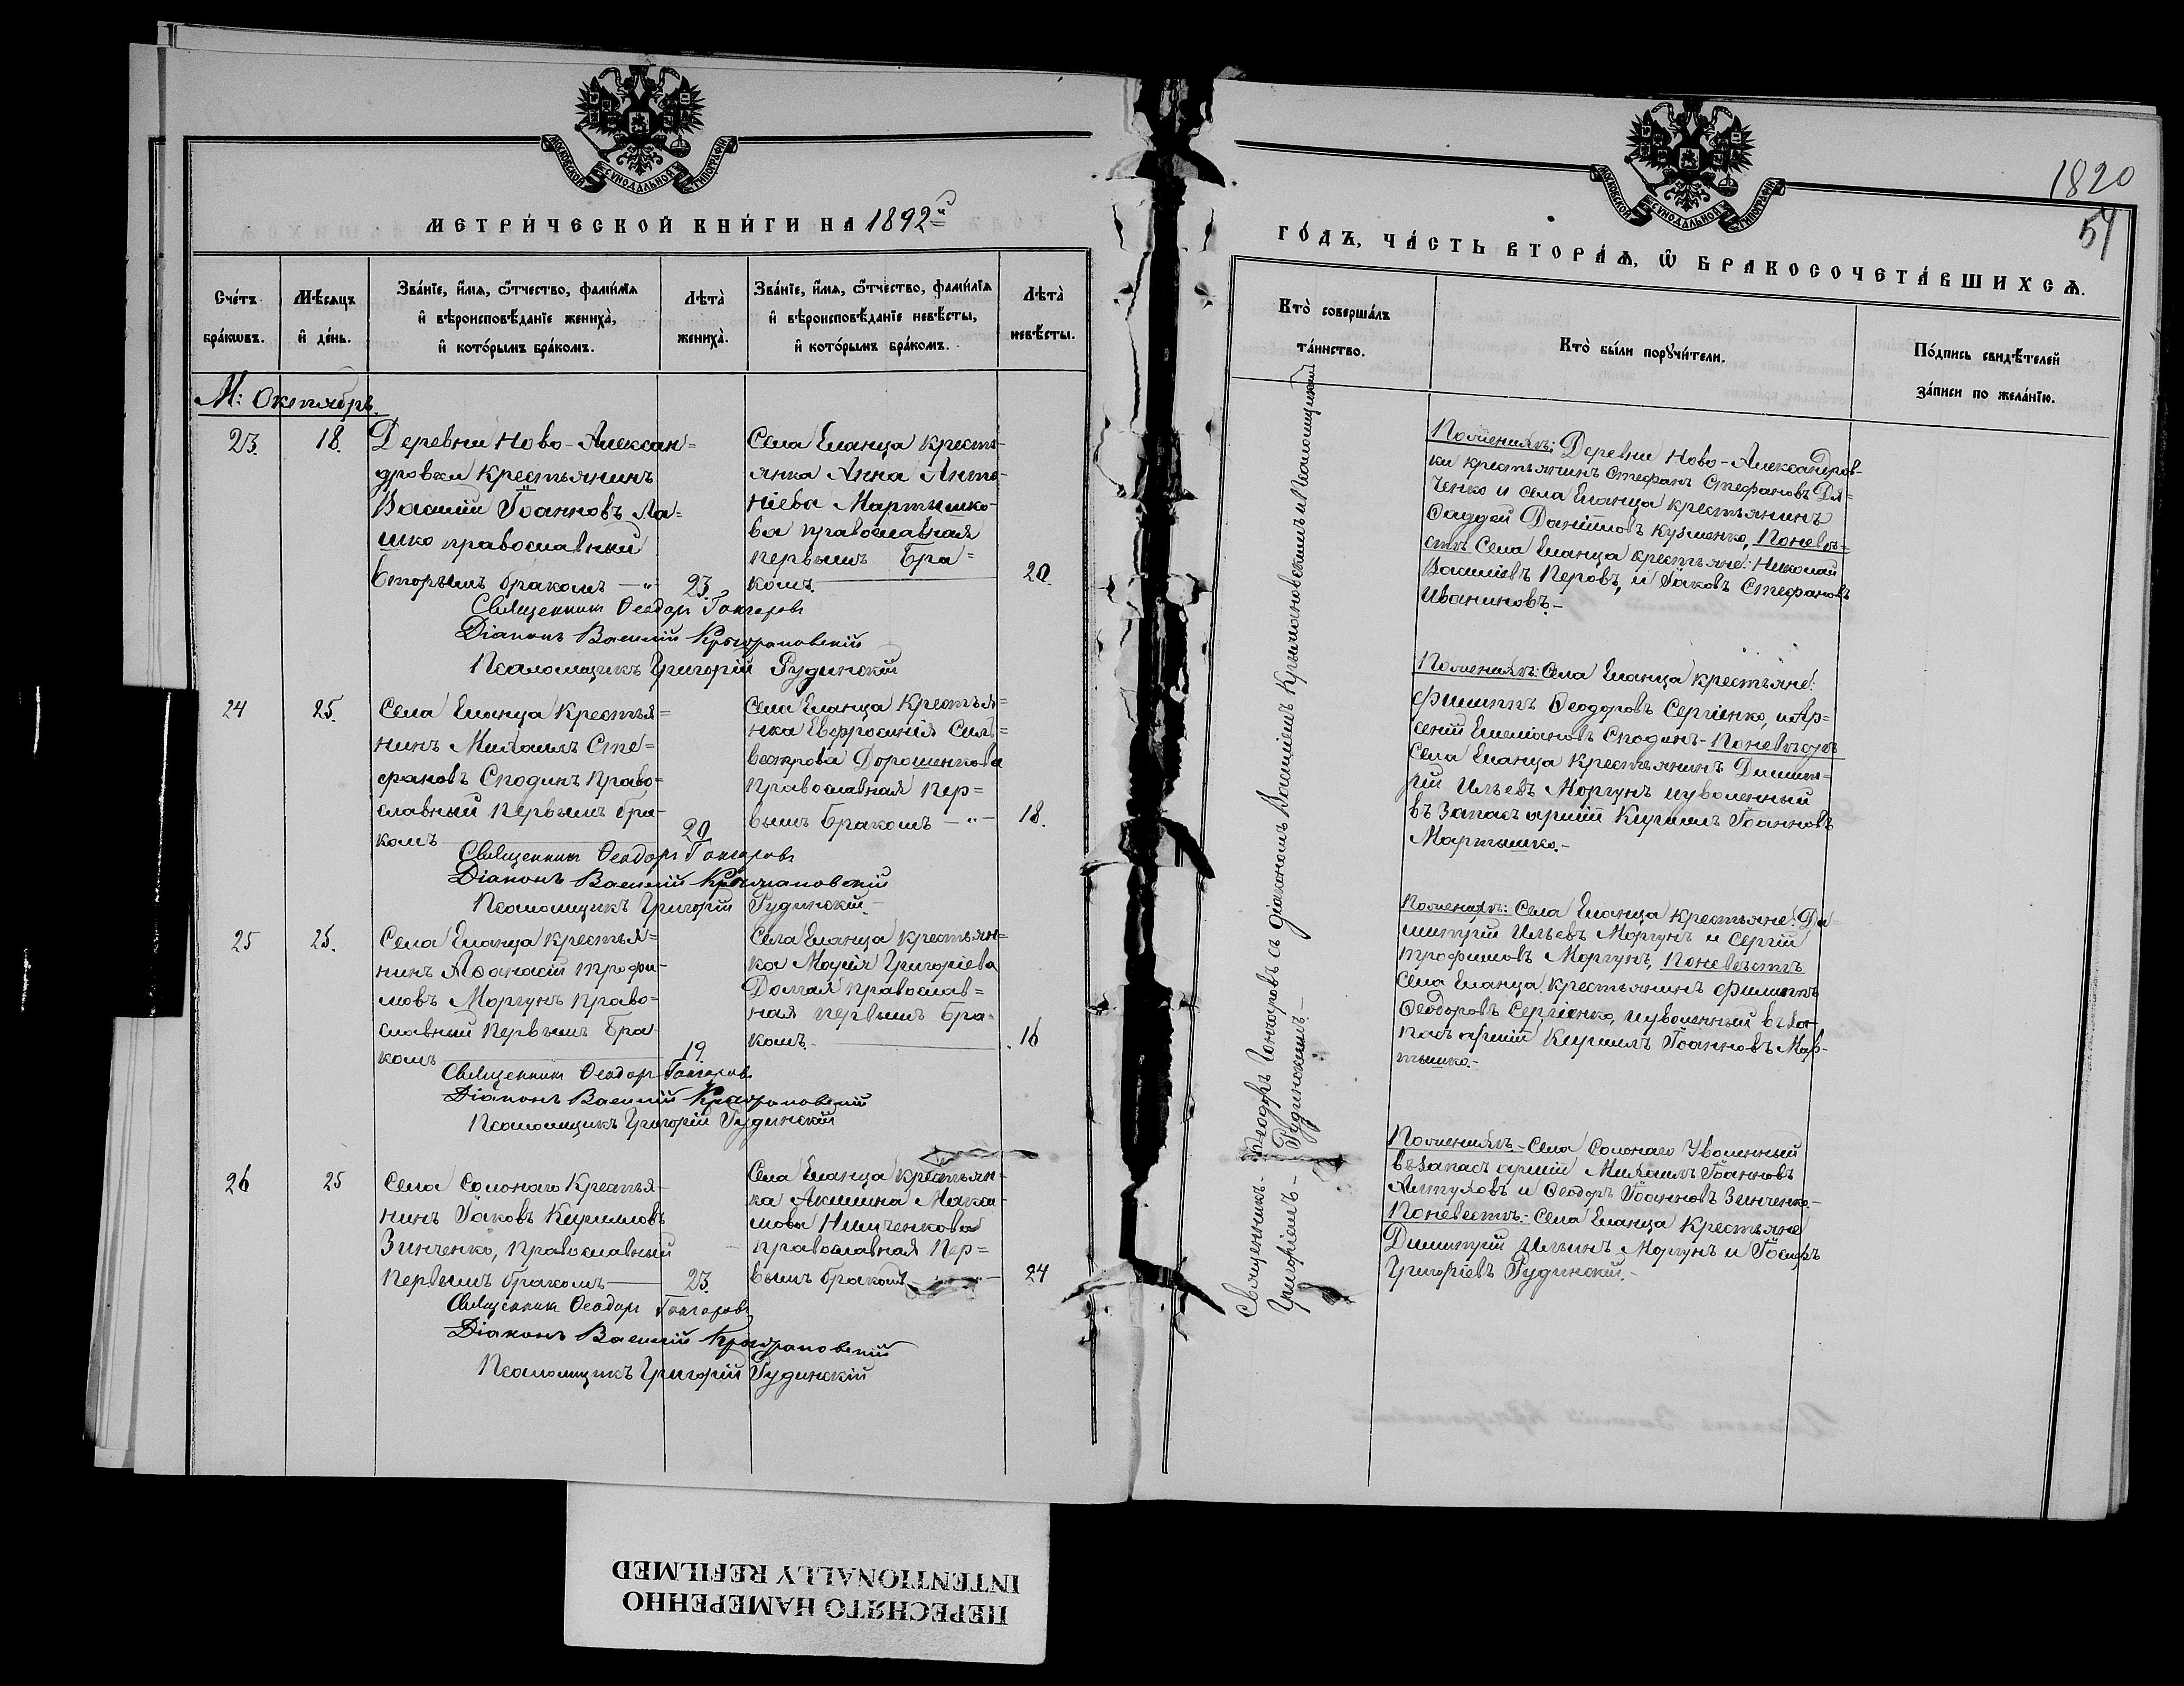 МОСКОВСКОЙ СѴНОДАЛЬНОЙ ТИПОГРАФІИ
МЕТРИ́ЧЕСКОЙ КНИ́ГИ НА 1892й
Сче́тъ бра́кѡвъ.
Мѣ́сяцъ и҆ де́нь.
Зва́нїе, и҆́мя, ѻ҆́тчество, фами́лїя
и҆ вѣроисповѣ́данїе жениха̀,
и҆ кото́рымъ бра́комъ.
Лѣта̀ жениха̀.
Зва́нїе, и҆́мя, ѻ҆́тчество, фами́лїя
и҆ вѣроисповѣ́данїе невѣ́сты,
и҆ кото́рымъ бра́комъ.
Лѣта̀ невѣ́сты.
М: Октябрь.
23. 18.
Деревни Ново-Алексан=
дровки крестьянинъ
Василій Іоанновъ Ла=
шко православный
вторымъ бракомъ —"—
23.
Села Еланца кресть-
янка Анна Анто-
ніева Мартышко-
ва православная
первымъ бра=
комъ.
20.
Священникъ Ѳеодоръ Гонгоровъ
Діаконъ Василій Крыжановскій
Псаломщикъ Григорій Рудинскій
24 25.
Села Еланца крестья=
нинъ Михаилъ Сте=
фановъ Сподинъ право=
славный первымъ бра-
комъ
20
Села Еланца крестья=
нка Евфросинія Силь=
вестрова Дорошенкова
православная пер=
вымъ бракомъ —"—
18.
Священникъ Ѳеодоръ Гонгоровъ
Діаконъ Василій Крыжановскій
Псаломщикъ Григорій Рудинскій.
25 25.
Села Еланца крестья=
нинъ Аѳанасій Трофи-
мовъ Моргунъ право-
славный первымъ бра-
комъ
19.
Села Еланца крестьян=
ка Марія Григоріева
Долгая православ=
ная первымъ бра-
комъ.
16
Священникъ Ѳеодоръ Гонгоровъ
Діаконъ Василій Крыжановскій
Псаломщикъ Григорій Рудинскій
26 25
Села Солонаго крестья-
нинъ Іаковъ Кирилловъ
Зинченко, православный
первымъ бракомъ
23.
Села Еланца крестьян-
ка Акилина
Нимченкова
православная пер=
вымъ бракомъ
24
Священникъ Ѳеодоръ Гонгоровъ
Діаконъ Василій Крыжановскій
Псаломщикъ Григорій Рудинскій
МОСКОВСКОЙ СѴНОДАЛЬНОЙ ТИПОГРАФІИ
1820
54
ГО́ДЪ, ЧА́СТЬ ВТОРА́Ѧ, Ѡ҆ БРАКОСОЧЕТА́ВШИХСѦ.
Кто̀ соверша́лъ
та́инство.
Кто̀ бы́ли порꙋчи́тели.
По́дпись свидѣ́телей
за́писи по жела́нїю.
Священникъ Ѳеодоръ Гонгоровъ съ діакономъ Василіемъ Крыжановскимъ и Псаломщикомъ
Григоріемъ Рудинскимъ.—
По женихѣ: Деревни Ново-Александров-
ки крестьянинъ Стефанъ Стефановъ Дя=
ченко и села Еланца крестьянинъ
Ѳаддей Даніиловъ Кузменко, По невѣ=
стѣ Села Еланца крестьяне: Николай
Василіевъ Перовъ, и Іаковъ Стефановъ
Иваниновъ.—
По женихѣ: Села Еланца крестьяне:
Филиппъ Ѳеодоровъ Сергіенко, и Ар=
сеній Емеліановъ Сподинъ- По невѣстѣ
Села Еланца крестьянинъ Димит-
рій Ильевъ Моргунъ и уволенный
въ запасъ арміи Кириллъ Іоанновъ
Мартышко.—
По женихѣ: Села Еланца крестьяне: Ди-
митрій Ильевъ Моргунъ и Сергій
Трофимовъ Моргунъ, По невѣстѣ
Села Еланца, крестьянинъ Филиппъ
Ѳеодоровъ Сергіенко, и уволенный въ за-
пасъ арміи Кириллъ Іоанновъ Мар-
тышко.—
По женихѣ.- Села Солонаго Уволенный
въ запасъ арміи Михаилъ Іоанновъ
и Ѳеодоръ Іоанновъ Зинченко.-
По невестѣ.- Села Еланца крестьяне
Димитрій Ильинъ Моргунъ и Іосифъ
Григоріевъ Рудинскій.-
ПЕРЕСНЯТО НАМЕРЕННО
INTENTIONALLY REFILMED